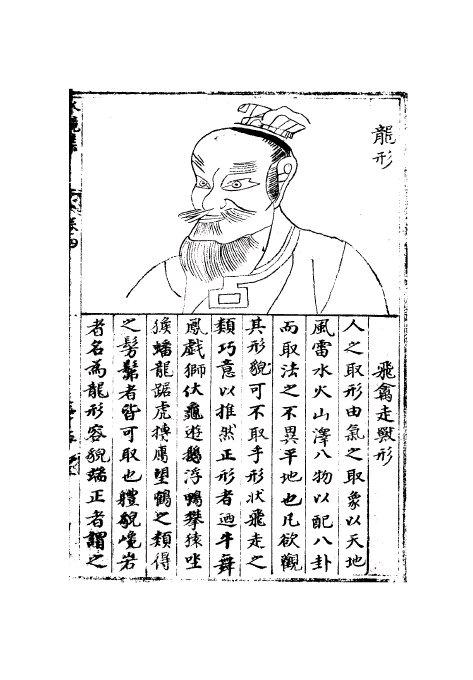 龍形
飛禽走獸形
人之取形由氣之取象以天地
風雷水火山澤八物以配八卦
而取法之不異乎地也凡欲觀
其形貌可不取乎形狀飛走之
類巧意以推然正形者迺牛舞
鳳戲獅伏龜遊鵝浮鴨攀猿坐
猴蟠龍踞虎摶鷹望鶴之類得
之髣髴者皆可取也體貌巉岩
者名為龍形容貌端正者謂之